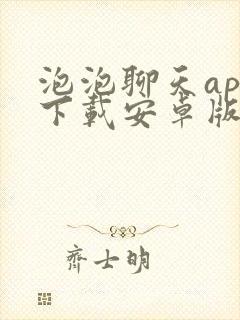 泡泡聊天ap
下载安卓版
齐士明